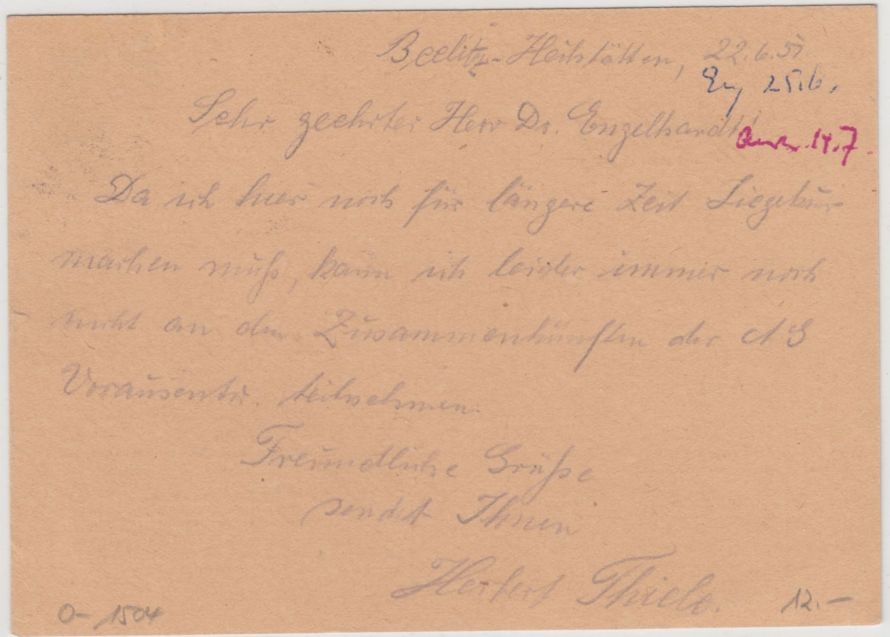 Beelitz-Heilstätten, 22.6.57
25.6.
Sehr geehrter Herr Dr. Engelhardt!
14.7.
Da ich hier noch für längere Zeit Liegekur
machen muß, kann ich leider immer noch
nicht an den Zusammenkünften der AG
Vorausentw. teilnehmen.
Freundliche Grüße
sendet Ihnen
Herbert Thiele.
0-1504
12.-